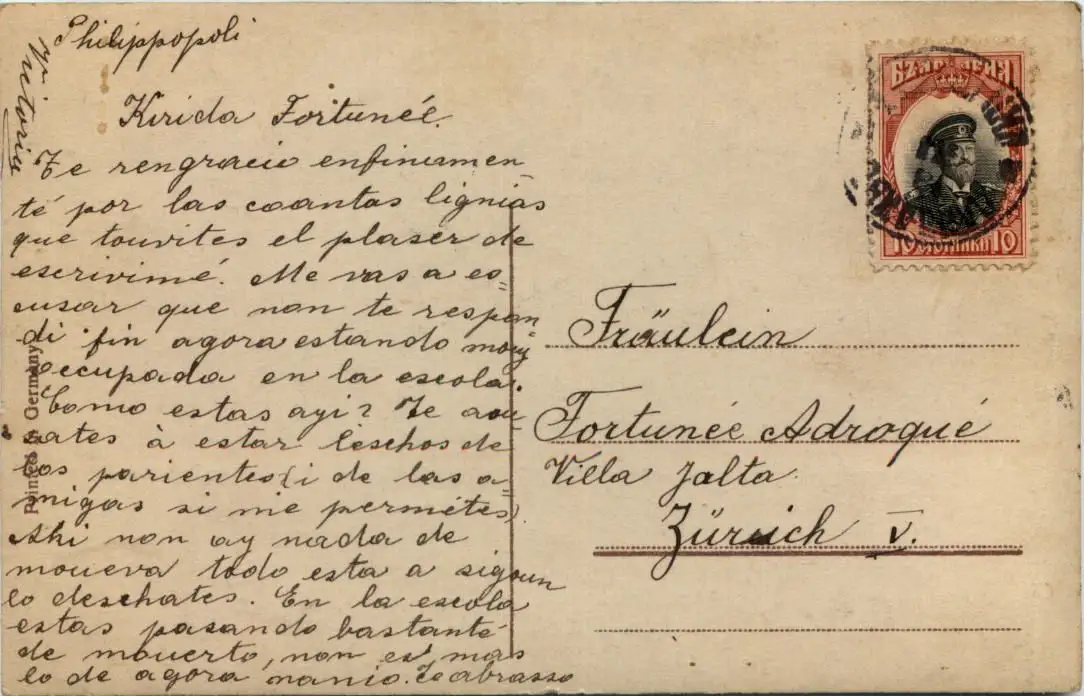 Philippopoli
Kirida Fortunéé.
Te rengracio enfiniamen
té por las coantas lignias
que touvites el plaser de
escrivimé. Me vas a es=
cusar que non te respon=
di fin agora estando mouy
occupada en la escola.
Como estas ayi? Te aou=
sates à estar leschos de
los parientes (i de las a=
migas si me permétés)
Aki non ay nada de
moueva todo esta a sigoun
lo deschates. En la escola
estas pasando bastanté
de mouerto, non es mas
lo de agora nanio. Te abrasso
Victoria
Printed in Germany
10 СТОТИНКИ 10
Fräulein
Fortunéé Adroqué
Villa Jalta
Züreich V.